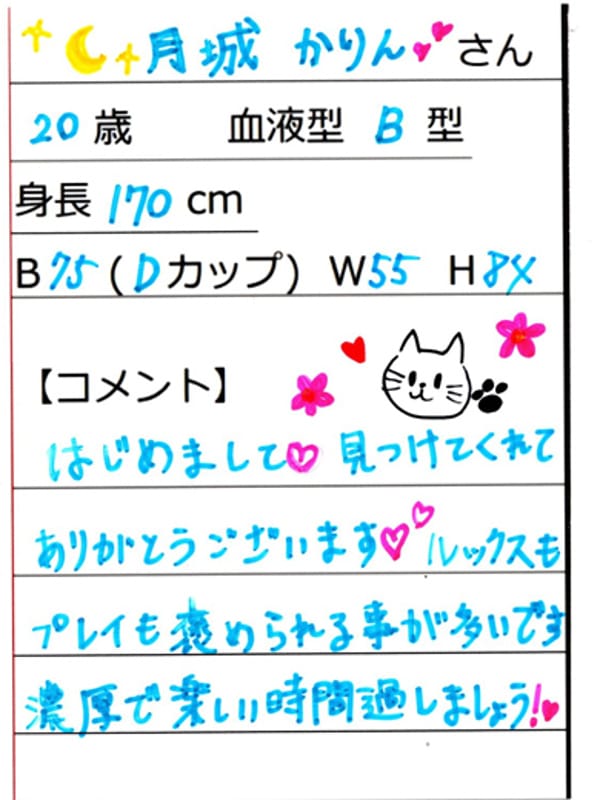 月城 かりん さん
20 歳 血液型 B 型
身長 170 cm
B 75 (Dカップ) W55 H 8X
【コメント】
はじめまして♡ 見つけてくれて
ありがとうございます♡♡ ルックスも
プレイも褒められる事が多いです
濃厚で楽しい時間過しましょう!♥